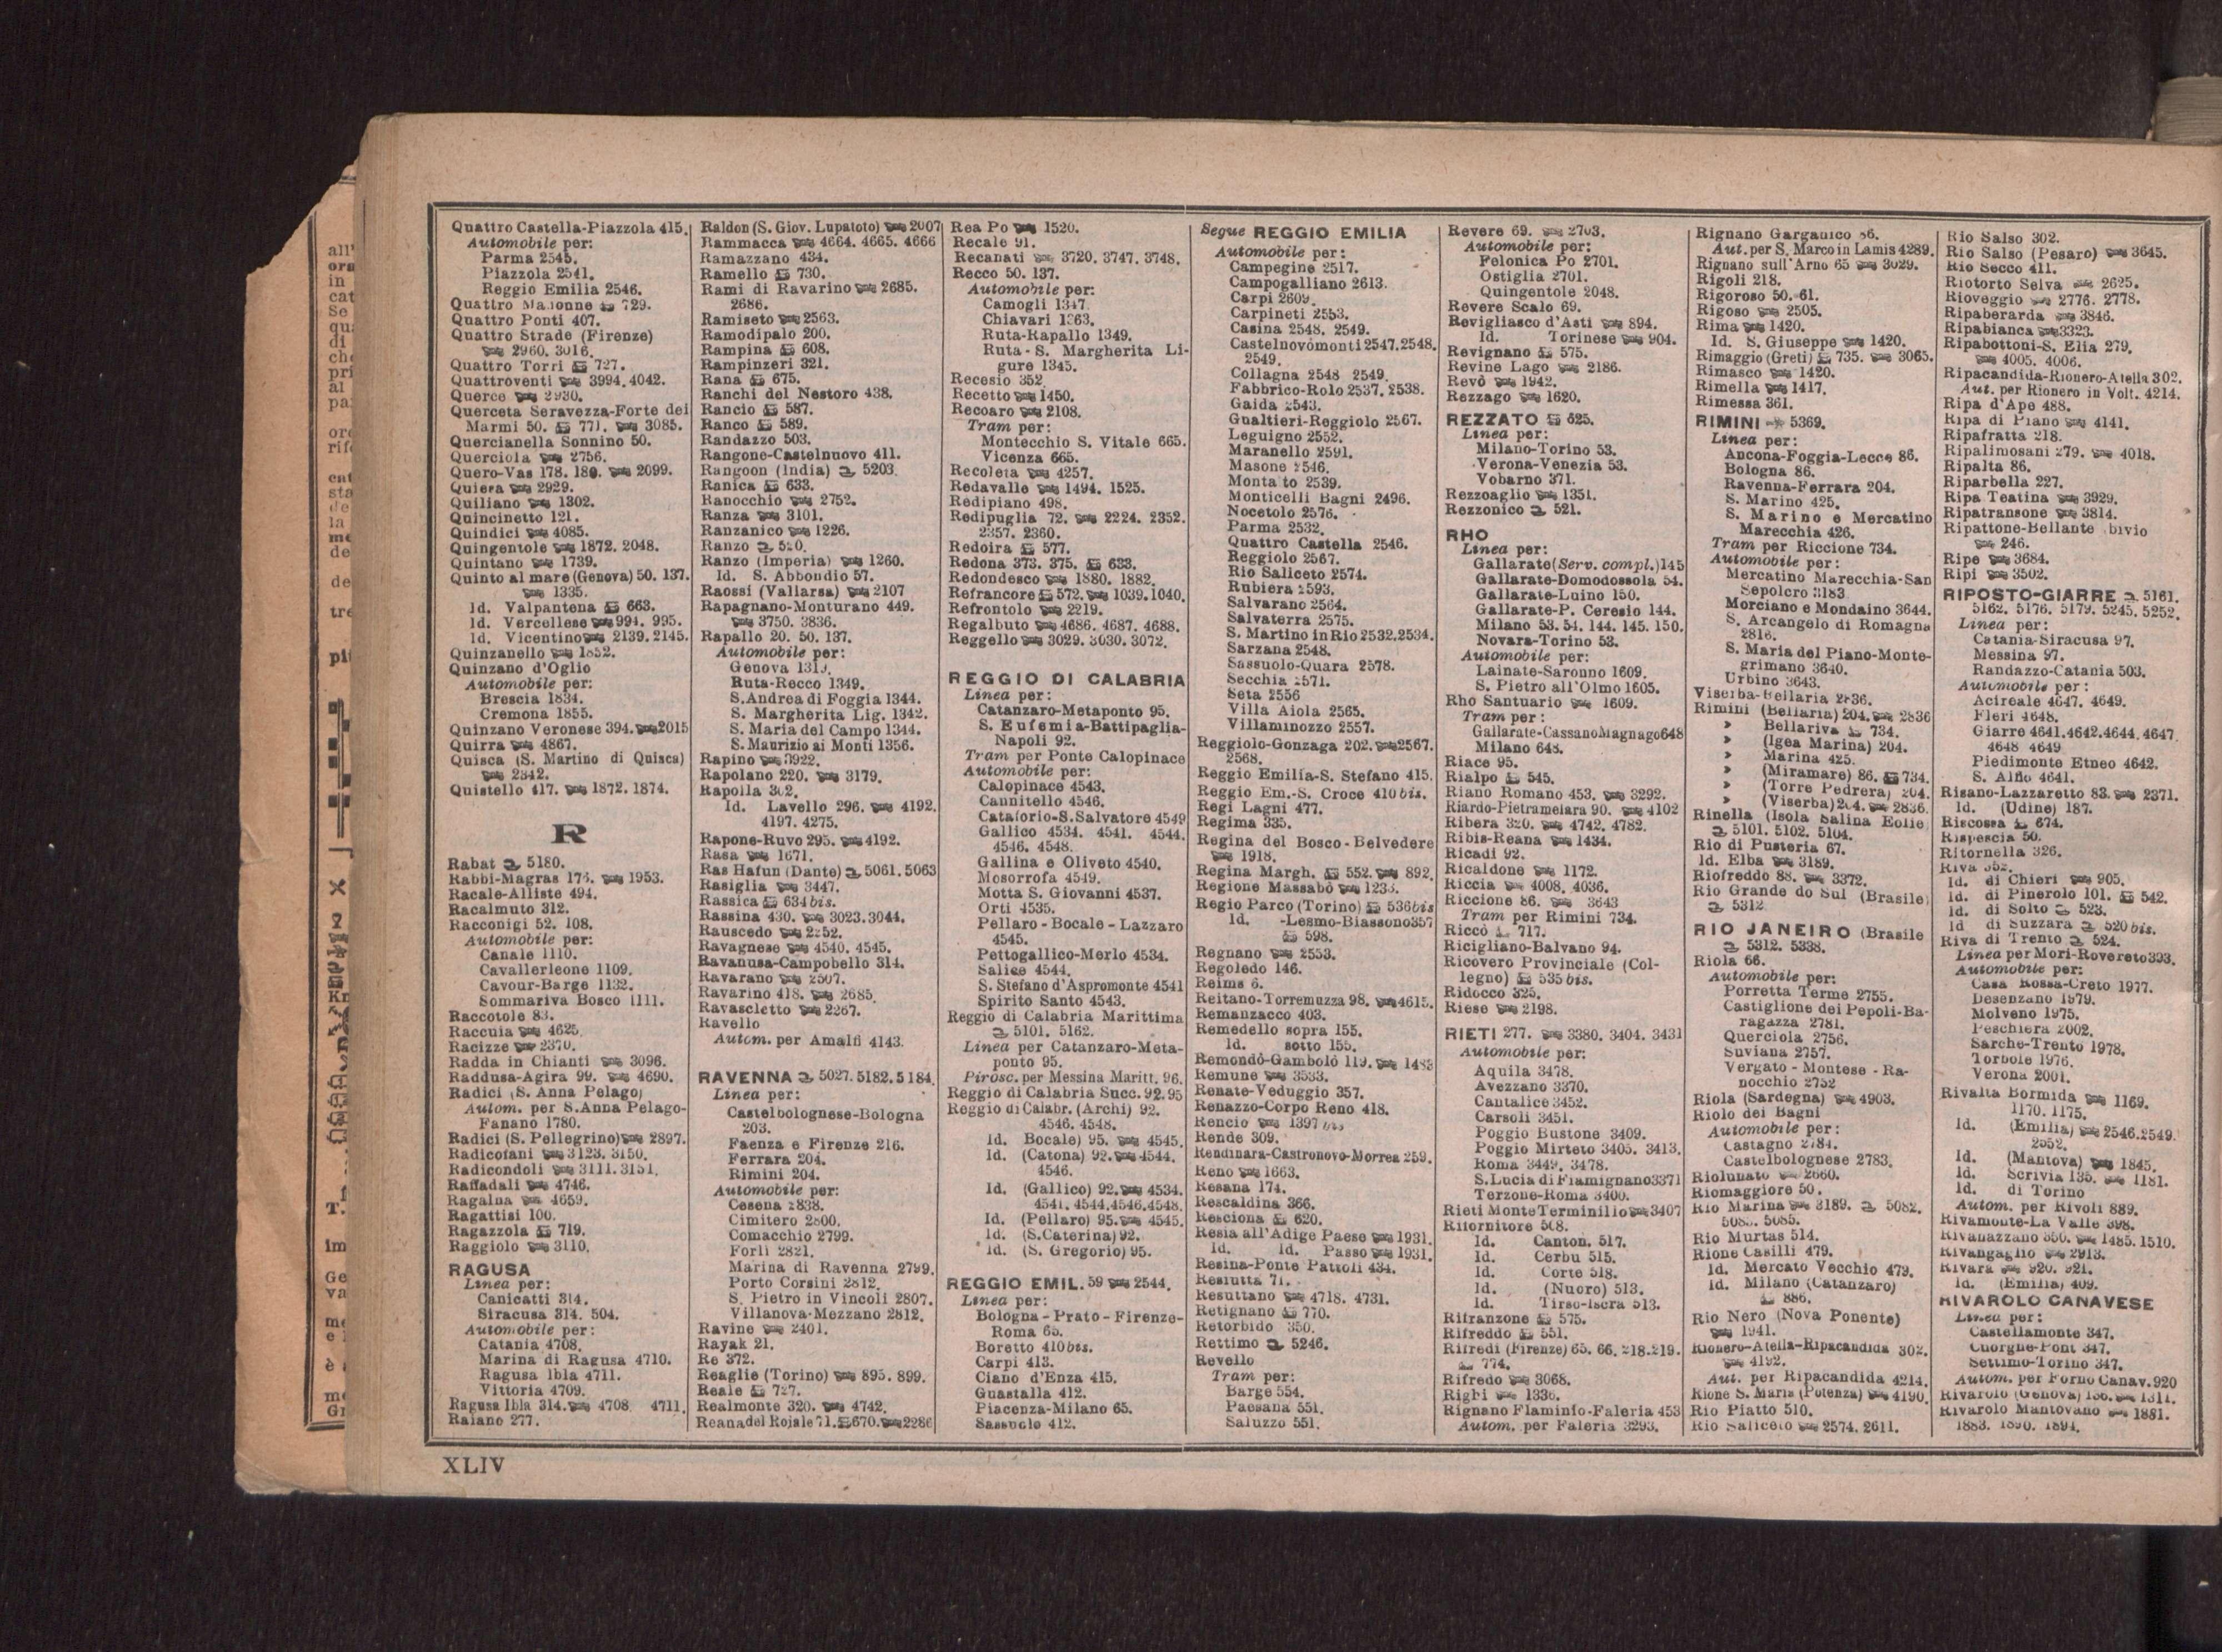 Quattro Castella-Piazzola 415.
Automobile per:
Parma 2545.
Piazzola 2541.
Reggio Emilia 2546.
Quattro Madonne 729.
Quattro Ponti 407.
Quattro Strade (Firenze)
2960. 3016.
Quattro Torri 727.
Quattroventi 3994. 4042.
Querce 2930.
Querceta Seravezza-Forte dei
Marmi 50. 771. 3085.
Quercianella Sonnino 50.
Querciola 2756.
Quero-Vas 178. 180. 2099.
Quiesa 2929.
Quiliano 1302.
Quincinetto 121.
Quindici 4085.
Quingentole 1872. 2048.
Quintano 1739.
Quinto al mare (Genova) 50. 137.
1335.
Id. Valpantena 663.
Id. Vercellese 994. 995.
Id. Vicentino 2139. 2145.
Quinzanello 1852.
Quinzano d'Oglio
Automobile per:
Brescia 1834.
Cremona 1855.
Quinzano Veronese 394. 2015
Quirra 4867.
Quisca (S. Martino di Quisca)
2342.
Quistello 417. 1872. 1874.
R
Rabat 5180.
Rabbi-Magras 173. 1953.
Racale-Alliste 494.
Racalmuto 312.
Racconigi 52. 108.
Automobile per:
Canale 1110.
Cavallerleone 1109.
Cavour-Barge 1132.
Sommariva Bosco 1111.
Raccotole 83.
Raccuia 4625.
Racizze 2370.
Radda in Chianti 3096.
Raddusa-Agira 99. 4690.
Radici (S. Anna Pelago)
Autom. per S. Anna Pelago-
Fanano 1780.
Radici (S. Pellegrino) 2897.
Radicofani 3123. 3150.
Radicondoli 3111. 3151.
Raffadali 4746.
Ragalna 4659.
Ragattisi 100.
Ragazzola 719.
Raggiolo 3110.
RAGUSA
Linea per:
Canicattì 314.
Siracusa 314. 504.
Automobile per:
Catania 4708.
Marina di Ragusa 4710.
Ragusa Ibla 4711.
Vittoria 4709.
Ragusa Ibla 314. 4708. 4711.
Raiano 277.
Raldon (S. Giov. Lupatoto) 2007
Rammacca 4664. 4665. 4666
Ramazzano 434.
Ramello 730.
Rami di Ravarino 2685.
2686.
Ramiseto 2563.
Ramodipalo 200.
Rampina 608.
Rampinzeri 321.
Rana 675.
Ranchi del Nestoro 438.
Rancio 587.
Ranco 589.
Randazzo 503.
Rangone-Castelnuovo 411.
Rangoon (India) 5203.
Ranica 633.
Ranocchio 2752.
Ranza 3101.
Ranzanico 1226.
Ranzo 520.
Ranzo (Imperia) 1260.
Id. S. Abbondio 57.
Raossi (Vallarsa) 2107
Rapagnano-Monturano 449.
3750. 3836.
Rapallo 20. 50. 137.
Automobile per:
Genova 1319.
Ruta-Recco 1349.
S. Andrea di Foggia 1344.
S. Margherita Lig. 1342.
S. Maria del Campo 1344.
S. Maurizio ai Monti 1356.
Rapino 3922.
Rapolano 220. 3179.
Rapolla 302.
Id. Lavello 296. 4192.
4197. 4275.
Rapone-Ruvo 295. 4192.
Rasa 1671.
Ras Hafun (Dante) 5061. 5063
Rasiglia 3447.
Rassica 634 bis.
Rassina 430. 3023. 3044.
Rauscedo 2252.
Ravagnese 4540. 4545.
Ravanusa-Campobello 314.
Ravarano 2507.
Ravarino 418. 2685.
Ravascletto 2267.
Ravello
Autom. per Amalfi 4143.
RAVENNA 5027. 5182. 5184.
Linea per:
Castelbolognese-Bologna
203.
Faenza e Firenze 216.
Ferrara 204.
Rimini 204.
Automobile per:
Cesena 2838.
Cimitero 2800.
Comacchio 2799.
Forlì 2821.
Marina di Ravenna 2799.
Porto Corsini 2812.
S. Pietro in Vincoli 2807.
Villanova-Mezzano 2812.
Ravine 2401.
Rayak 21.
Re 372.
Reaglie (Torino) 895. 899.
Reale 727.
Realmonte 320. 4742.
Reana del Rojale 71. 670. 2286
Rea Po 1520.
Recale 91.
Recanati 3720. 3747. 3748.
Recco 50. 137.
Automobile per:
Camogli 1347.
Chiavari 1363.
Ruta-Rapallo 1349.
Ruta - S. Margherita Li-
gure 1345.
Recesio 352.
Recetto 1450.
Recoaro 2108.
Tram per:
Montecchio S. Vitale 665.
Vicenza 665.
Recoleta 4257.
Redavalle 1494. 1525.
Redipiano 498.
Redipuglia 72. 2224. 2352.
2357. 2360.
Redoira 577.
Redona 373. 375. 633.
Redondesco 1880. 1882.
Refrancore 572. 1039. 1040.
Refrontolo 2219.
Regalbuto 4686. 4687. 4688.
Reggello 3029. 3030. 3072.
REGGIO DI CALABRIA
Linea per:
Catanzaro-Metaponto 95.
S. Eufemia-Battipaglia-
Napoli 92.
Tram per Ponte Calopinace
Automobile per:
Calopinace 4543.
Cannitello 4546.
Cataforio-S. Salvatore 4549
Gallico 4534. 4541. 4544.
4546. 4548.
Gallina e Oliveto 4540.
Mosorrofa 4549.
Motta S. Giovanni 4537.
Orti 4535.
Pellaro - Bocale - Lazzaro
4545.
Pettogallico-Merlo 4534.
Salice 4544.
S. Stefano d'Aspromonte 4541
Spirito Santo 4543.
Reggio di Calabria Marittima
5101. 5162.
Linea per Catanzaro-Meta-
ponto 95.
Pirosc. per Messina Maritt. 96.
Reggio di Calabria Succ. 92. 95
Reggio di Calabr. (Archi) 92.
4546. 4548.
Id. Bocale) 95. 4545.
Id. (Catona) 92. 4544.
4546.
Id. (Gallico) 92. 4534.
4541. 4544. 4546. 4548.
Id. (Pellaro) 95. 4545.
Id. (S. Caterina) 92.
Id. (S. Gregorio) 95.
REGGIO EMIL. 59 2544.
Linea per:
Bologna - Prato - Firenze-
Roma 65.
Boretto 410 bis.
Carpi 413.
Ciano d'Enza 415.
Guastalla 412.
Piacenza-Milano 65.
Sassuolo 412.
Segue REGGIO EMILIA
Automobile per:
Campegine 2517.
Campogalliano 2613.
Carpi 2609.
Carpineti 2553.
Casina 2548. 2549.
Castelnovomonti 2547. 2548.
2549.
Collagna 2548 2549.
Fabbrico-Rolo 2537. 2538.
Gaida 2543.
Gualtieri-Reggiolo 2567.
Leguigno 2552.
Maranello 2591.
Masone 2546.
Montato 2539.
Monticelli Bagni 2496.
Nocetolo 2576.
Parma 2532.
Quattro Castella 2546.
Reggiolo 2567.
Rio Saliceto 2574.
Rubiera 2593.
Salvarano 2564.
Salvaterra 2575.
S. Martino in Rio 2532. 2534.
Sarzana 2548.
Sassuolo-Quara 2578.
Secchia 2571.
Seta 2556
Villa Aiola 2565.
Villaminozzo 2557.
Reggiolo-Gonzaga 202. 2567.
2568.
Reggio Emilia-S. Stefano 415.
Reggio Em.-S. Croce 410 bis.
Regi Lagni 477.
Regima 335.
Regina del Bosco-Belvedere
1918.
Regina Margh. 552. 892.
Regione Massabò 1233.
Regio Parco (Torino) 536 bis
Id. -Lesmo-Biassono 357
598.
Regnano 2553.
Regoledo 146.
Reims 6.
Reitano-Torremuzza 98. 4615.
Remanzacco 403.
Remedello sopra 155.
Id. sotto 155.
Remondò-Gambolò 119. 1483
Remune 3533.
Renate-Veduggio 357.
Renazzo-Corpo Reno 418.
Rencio 1397 bis
Rende 309.
Rendinara-Castronovo-Morrea 259.
Reno 1663.
Resana 174.
Rescaldina 366.
Resciona 620.
Resia all'Adige Paese 1931.
Id. Id. Passo 1931.
Resina-Ponte Pattoli 434.
Resiutta 71.
Resuttano 4718. 4731.
Retignano 770.
Retorbido 350.
Rettimo 5246.
Revello
Tram per:
Barge 554.
Paesana 551.
Saluzzo 551.
Revere 69. 2703.
Automobile per:
Felonica Po 2701.
Ostiglia 2701.
Quingentole 2048.
Revere Scalo 69.
Revigliasco d'Asti 894.
Id. Torinese 904.
Revignano 575.
Revine Lago 2186.
Revò 1942.
Rezzago 1620.
REZZATO 625.
Linea per:
Milano-Torino 53.
Verona-Venezia 53.
Vobarno 371.
Rezzoaglio 1351.
Rezzonico 521.
RHO
Linea per:
Gallarate (Serv. compl.) 145
Gallarate-Domodossola 54.
Gallarate-Luino 150.
Gallarate-P. Ceresio 144.
Milano 53. 54. 144. 145. 150.
Novara-Torino 53.
Automobile per:
Lainate-Saronno 1609.
S. Pietro all'Olmo 1605.
Rho Santuario 1609.
Tram per:
Gallarate-Cassano Magnago 648
Milano 648.
Riace 95.
Rialpo 545.
Riano Romano 453. 3292.
Riardo-Pietramelara 90. 4102
Ribera 320. 4742. 4782.
Ribis-Reana 1434.
Ricadi 92.
Ricaldone 1172.
Riccia 4008. 4036.
Riccione 86. 3643
Tram per Rimini 734.
Riccò 717.
Ricigliano-Balvano 94.
Ricovero Provinciale (Col-
legno) 535 bis.
Ridocco 325.
Riese 2198.
RIETI 277. 3380. 3404. 3431
Automobile per:
Aquila 3478.
Avezzano 3370.
Cantalice 3452.
Carsoli 3451.
Poggio Bustone 3409.
Poggio Mirteto 3405. 3413.
Roma 3449. 3478.
S. Lucia di Fiamignano 3371
Terzone-Roma 3400.
Rieti Monte Terminilio 3407
Rifornitore 508.
Id. Canton. 517.
Id. Cerbu 515.
Id. Corte 518.
Id. (Nuoro) 513.
Id. Tirso-Iscra 513.
Rifranzone 575.
Rifreddo 551.
Rifredi (Firenze) 65. 66. 218. 219.
774.
Rifredo 3068.
Righi 1336.
Rignano Flaminio-Faleria 453
Autom. per Faleria 3293.
Rignano Garganico 86.
Aut. per S. Marco in Lamis 4289.
Rignano sull'Arno 65 3029.
Rigoli 218.
Rigoroso 50. 61.
Rigoso 2505.
Rima 1420.
Id. S. Giuseppe 1420.
Rimaggio (Greti) 735. 3065.
Rimasco 1420.
Rimella 1417.
Rimessa 361.
RIMINI 5369.
Linea per:
Ancona-Foggia-Lecce 86.
Bologna 86.
Ravenna-Ferrara 204.
S. Marino 425.
S. Marino e Mercatino
Marecchia 426.
Tram per Riccione 734.
Automobile per:
Mercatino Marecchia-San
Sepolcro 3183
Morciano e Mondaino 3644.
S. Arcangelo di Romagna
2816.
S. Maria del Piano-Monte-
grimano 3640.
Urbino 3643.
Viserba-Bellaria 2836.
Rimini (Bellaria) 204. 2836
» Bellariva 734.
» (Igea Marina) 204.
» Marina 425.
» (Miramare) 86. 734.
» (Torre Pedrera) 204.
» (Viserba) 204. 2836.
Rinella (Isola Salina Eolie
5101. 5102. 5104.
Rio di Pusteria 67.
Id. Elba 3189.
Riofreddo 88. 3372.
Rio Grande do Sul (Brasile)
5312.
RIO JANEIRO (Brasile
5312. 5338.
Riola 66.
Automobile per:
Porretta Terme 2755.
Castiglione dei Pepoli-Ba-
ragazza 2781.
Querciola 2756.
Suviana 2757.
Vergato - Montese - Ra-
nocchio 2752
Riola (Sardegna) 4903.
Riolo dei Bagni
Automobile per:
Castagno 2784.
Castelbolognese 2783.
Riolunato 2660.
Riomaggiore 50.
Rio Marina 3189. 5082.
5083. 5085.
Rio Murtas 514.
Rione Casilli 479.
Id. Mercato Vecchio 479.
Id. Milano (Catanzaro)
886.
Rio Nero (Nova Ponente)
1941.
Rionero-Atella-Ripacandida 302.
4192.
Aut. per Ripacandida 4214.
Rione S. Maria (Potenza) 4190.
Rio Piatto 510.
Rio Saliceto 2574. 2611.
Rio Salso 302.
Rio Salso (Pesaro) 3645.
Rio Secco 411.
Riotorto Selva 2625.
Rioveggio 2776. 2778.
Ripaberarda 3846.
Ripabianca 3323.
Ripabottoni-S. Elia 279.
4005. 4006.
Ripacandida-Rionero-Atella 302.
Aut. per Rionero in Volt. 4214.
Ripa d'Ape 488.
Ripa di Piano 4141.
Ripafratta 218.
Ripalimosani 279. 4018.
Ripalta 86.
Riparbella 227.
Ripa Teatina 3929.
Ripatransone 3814.
Ripattone-Bellante bivio
246.
Ripe 3684.
Ripi 3502.
RIPOSTO-GIARRE 5161.
5162. 5176. 5179. 5245. 5252.
Linea per:
Catania-Siracusa 97.
Messina 97.
Randazzo-Catania 503.
Automobile per:
Acireale 4647. 4649.
Fleri 4648.
Giarre 4641. 4642. 4644. 4647.
4648 4649
Piedimonte Etneo 4642.
S. Alfio 4641.
Risano-Lazzaretto 83. 2371.
Id. (Udine) 187.
Riscossa 674.
Rispescia 50.
Ritornella 326.
Riva 352.
Id. di Chieri 905.
Id. di Pinerolo 101. 542.
Id. di Solto 523.
Id di Suzzara 520 bis.
Riva di Trento 524.
Linea per Mori-Rovereto 393.
Automobile per:
Casa Rossa-Creto 1977.
Desenzano 1979.
Molveno 1975.
Peschiera 2002.
Sarche-Trento 1978.
Torbole 1976.
Verona 2001.
Rivalta Bormida 1169.
1170. 1175.
Id. (Emilia) 2546. 2549.
2552.
Id. (Mantova) 1845.
Id. Scrivia 135. 1181.
Id. di Torino
Autom. per Rivoli 889.
Rivamonte-La Valle 398.
Rivanazzano 350. 1485. 1510.
Rivangaglio 2913.
Rivara 920. 921.
Id. (Emilia) 409.
RIVAROLO CANAVESE
Linea per:
Castellamonte 347.
Cuorgnè-Pont 347.
Settimo-Torino 347.
Autom. per Forno Canav. 920
Rivarolo (Genova) 136. 1311.
Rivarolo Mantovano 1881.
1883. 1890. 1894.
XLIV